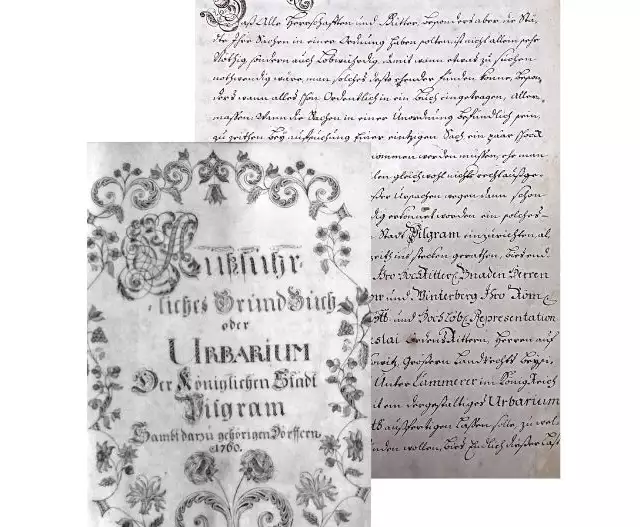 Außführ-
liches Grund Buch
oder
URBARIUM
Der Königlichen Stadt
Pilgram
Sambt darzu gehörigen Dörffern.
1760.
Daß Alle Herrschafften und Ritter, besonders aber die Stä-
dte Ihre Sachen in einer Ordnung haben sollen, ist nicht allein sehr
Nöthig sondern auch Lobwürdig, damit wann etwas zu suchen
nothwendig wäre, man solches desto ehender finden könne, beson-
ders wann alles schon Ordentlich in ein Buch eingetragen, Aller-
massen, Wann die Sachen in einer Unordnung befindlich seyn,
zu zeithen bey aufsuchung einer eintzigen Sach ein paar
nommen werden müsten, ehe man
len gleichwohl nichts recht außge-
Ursachen wegen dann schon
dig erkennet worden ein solches
Stadt Pilgram einzurichten, al
ins stocken gerathen, biß end
Ihro Hoch Ritter: Gnaden Herren
und Winterberg Ihro Röm:
und Hochlöb: Repraesentation
slai Ordens Rittern, Herren auf
owitz, Größern Landrechts Beysi
Unter Cammerer im König Reich
ein dergestaltiges Urbarium
außfertigen lassen solle, zu wel
nden wollen, biß Endlich dießer Last